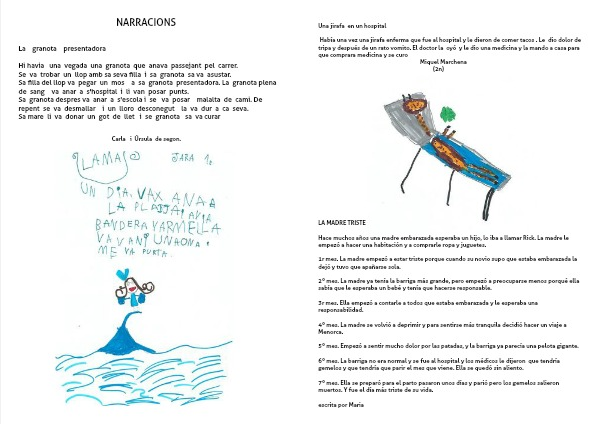 NARRACIONS
La granota presentadora
Hi havia una vegada una granota que anava passejant pel carrer.
Se va trobar un llop amb sa seva filla i sa granota sa va asustar.
Sa filla del llop va pegar un mos a sa granota presentadora. La granota plena
de sang va anar a s'hospital i li van posar punts.
Sa granota despres va anar a s'escola i se va posar malalta de cami. De
repent se va desmallar i un lloro desconegut la va dur a ca seva.
Sa mare li va donar un got de llet i se granota sa va curar
Carla i Úrsula de segon.
LAMA
JARA 1.
UN DIA. VAX ANAA
LA PLATJA
BANDERA VARMELLA
VA VANI UNAONA I
ME VA PURTA.
Una jirafa en un hospital
Habia una vez una jirafa enferma que fue al hospital y le dieron de comer tacos . Le dio dolor de
tripa y después de un rato vomito. El doctor la oyó y le dio una medicina y la mando a casa para
que comprara medicina y se curo
Miquel Marchena
(2n)
LA MADRE TRISTE
Hace muchos años una madre embarazada esperaba un hijo, lo iba a llamar Rick. La madre le
empezó a hacer una habitación y a comprarle ropa y juguetes.
1r mes. La madre empezó a estar triste porque cuando su novio supo que estaba embarazada la
dejó y tuvo que apañarse sola.
2º mes. La madre ya tenía la barriga más grande, pero empezó a preocuparse menos porqué ella
sabía que le esperaba un bebé y tenía que hacerse responsable.
3r mes. Ella empezó a contarle a todos que estaba embarazada y le esperaba una
responsabilidad.
4º mes. La madre se volvió a deprimir y para sentirse más tranquila decidió hacer un viaje a
Menorca.
5º mes. Empezó a sentir mucho dolor por las patadas, y la barriga ya parecía una pelota gigante.
6º mes. La barriga no era normal y se fue al hospital y los médicos le dijeron que tendría
gemelos y que tendría que parir el mes que viene. Ella se quedó sin aliento.
7º mes. Ella se preparó para el parto pasaron unos días y parió pero los gemelos salieron
muertos. Y fue el día más triste de su vida.
escrita por Maria